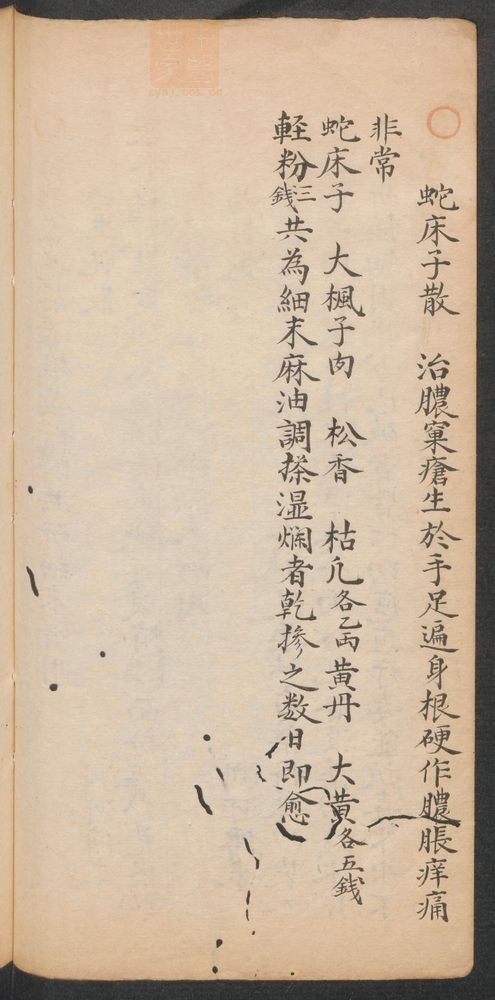 蛇床子散　治膿窠瘡生於手足遍身根硬作膿脹痒痛
非常
蛇床子　大楓子肉　松香　枯凢各乙両黄丹　大黄各五錢
軽粉三錢共為細末麻油調搽湿爛者乾摻之数日即愈